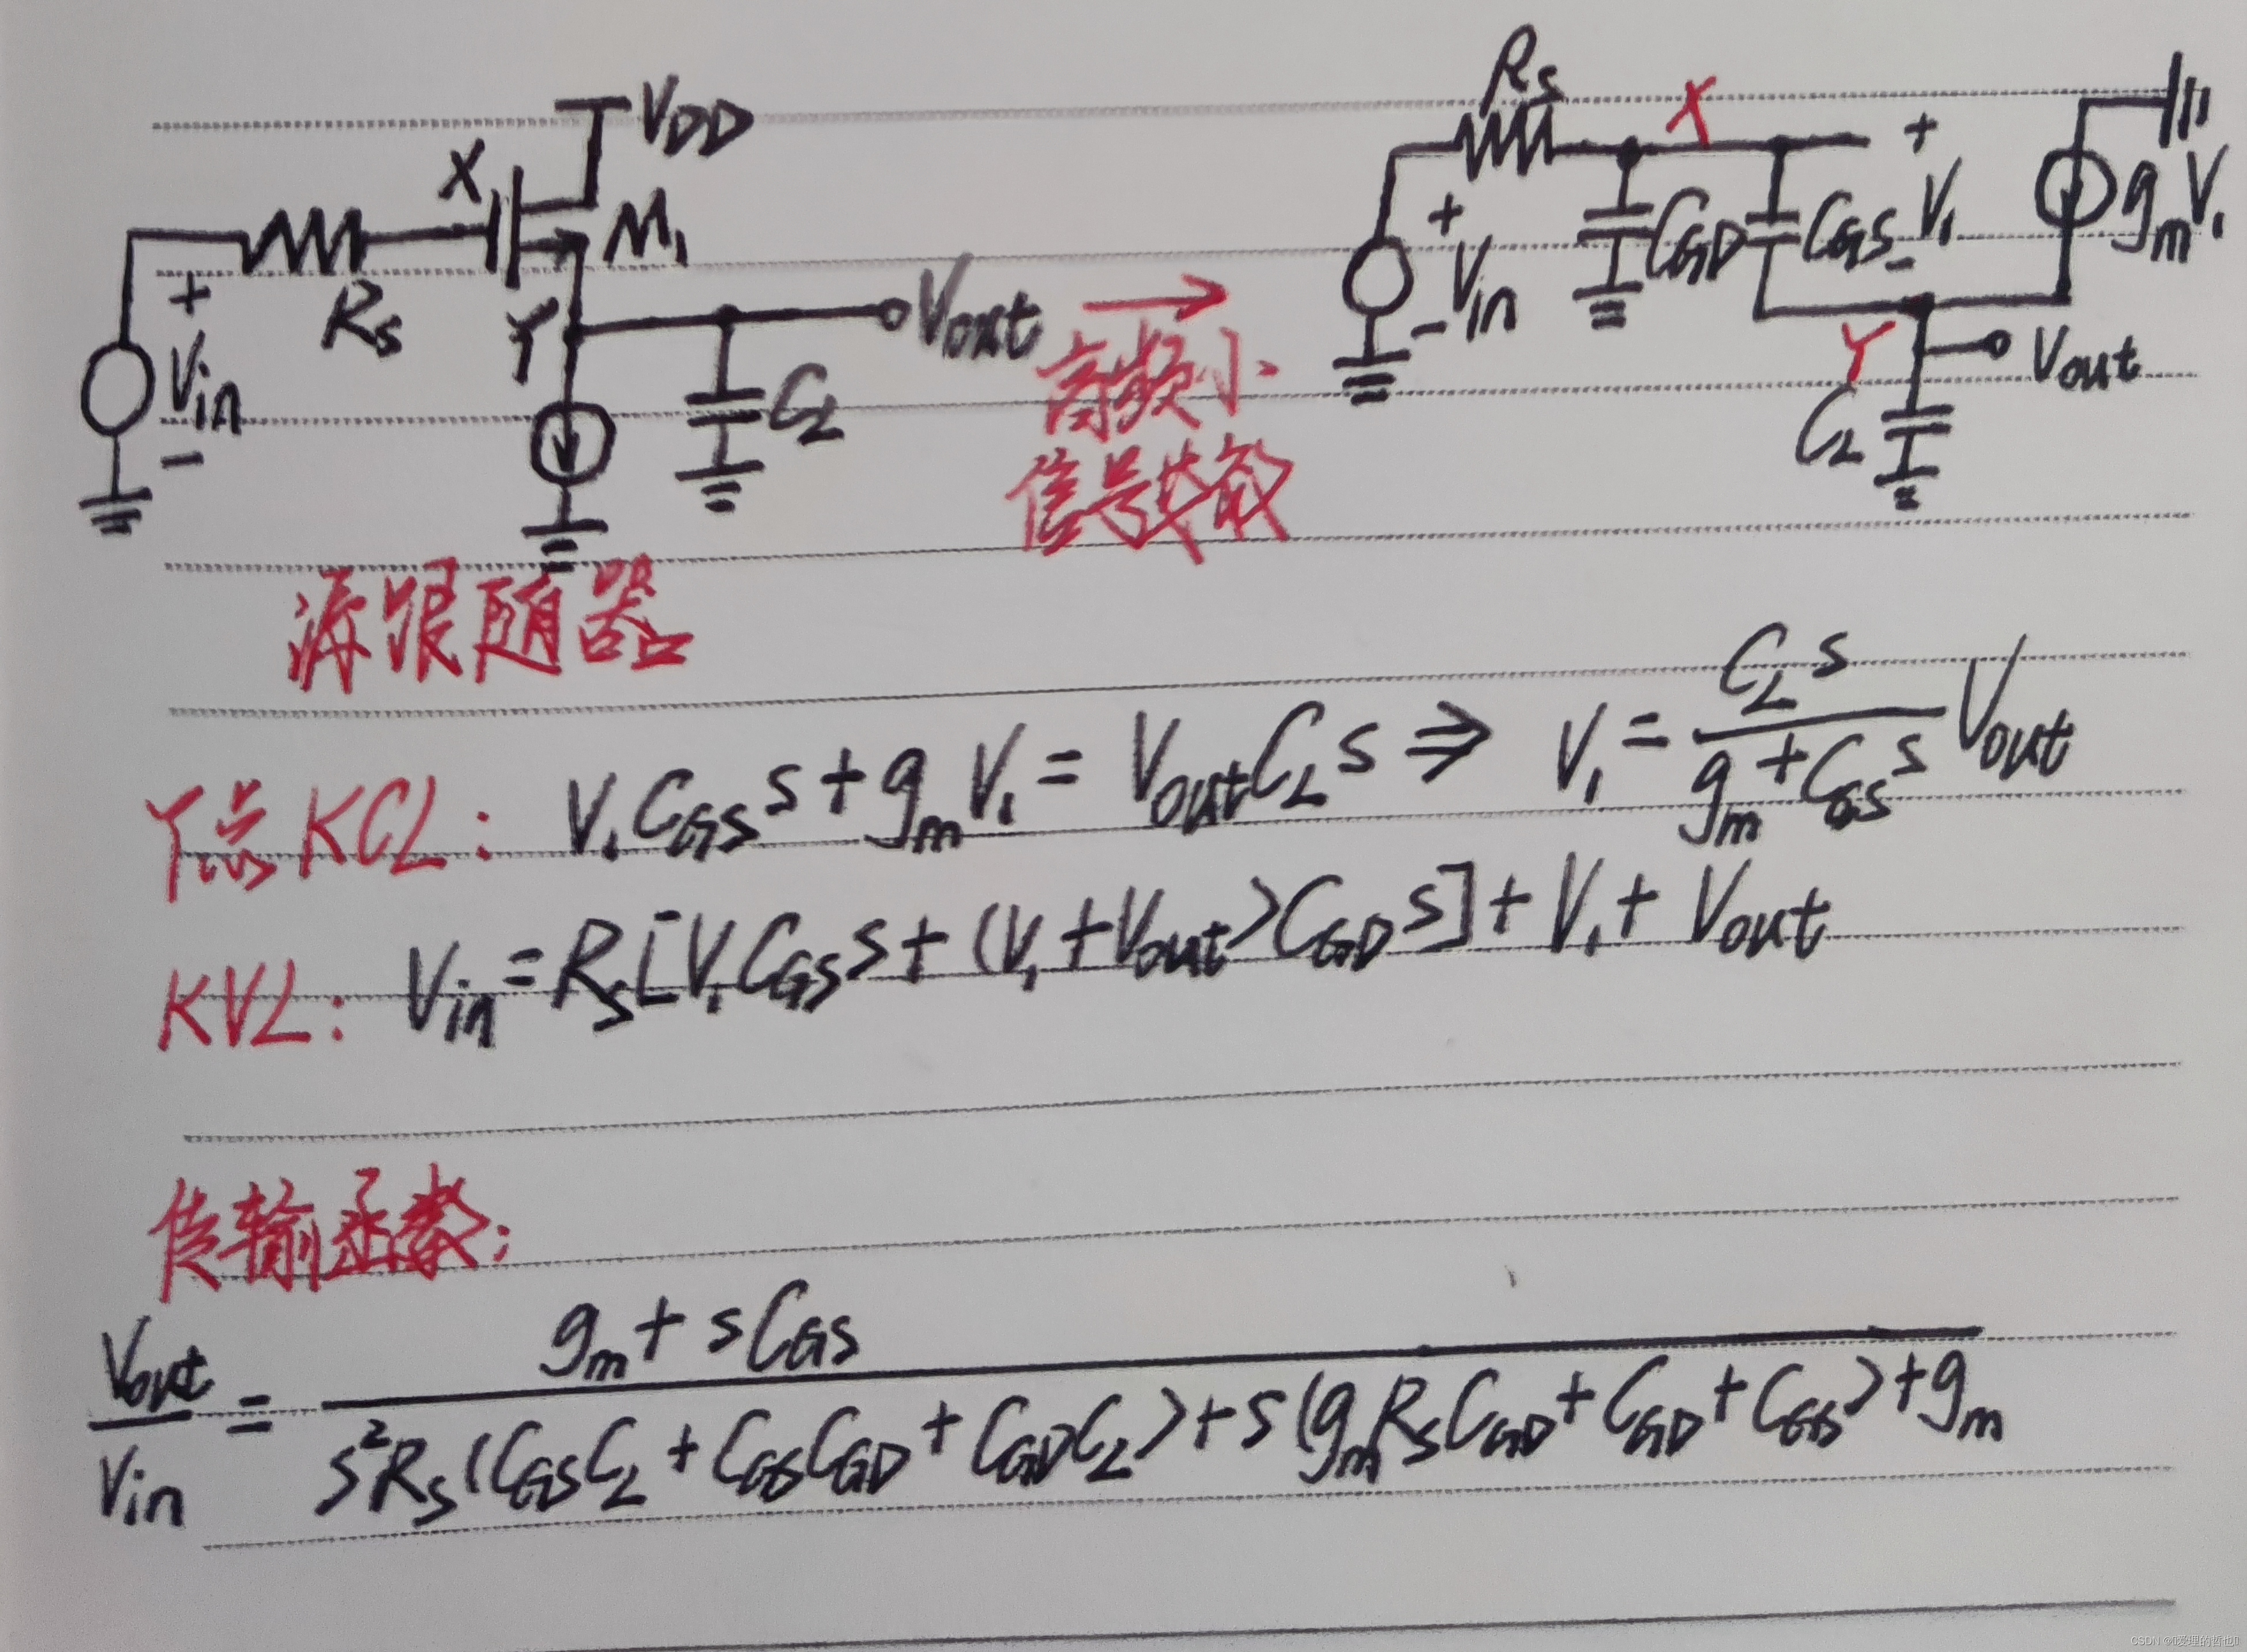 VDD
X
M₁
Rs
+
Vin
-
Y
Vout
CL
高频小
信号等效
Rs
X
+
Vin
-
CGD
CGS
+
V₁
-
gmV₁
Y
Vout
CL
源跟随器
Y点KCL: V₁CGSs+gmV₁=VoutCLs⇒ V₁=CLs/(gm+CGSs) Vout
KVL: Vin=Rs[V₁CGSs+(V₁+Vout)CGDs]+V₁+Vout
传输函数:
Vout/Vin = (gm+sCGS)/(s²Rs(CGSCL+CGSCGD+CGDCL)+s(gmRsCGD+CGD+CGS)+gm)